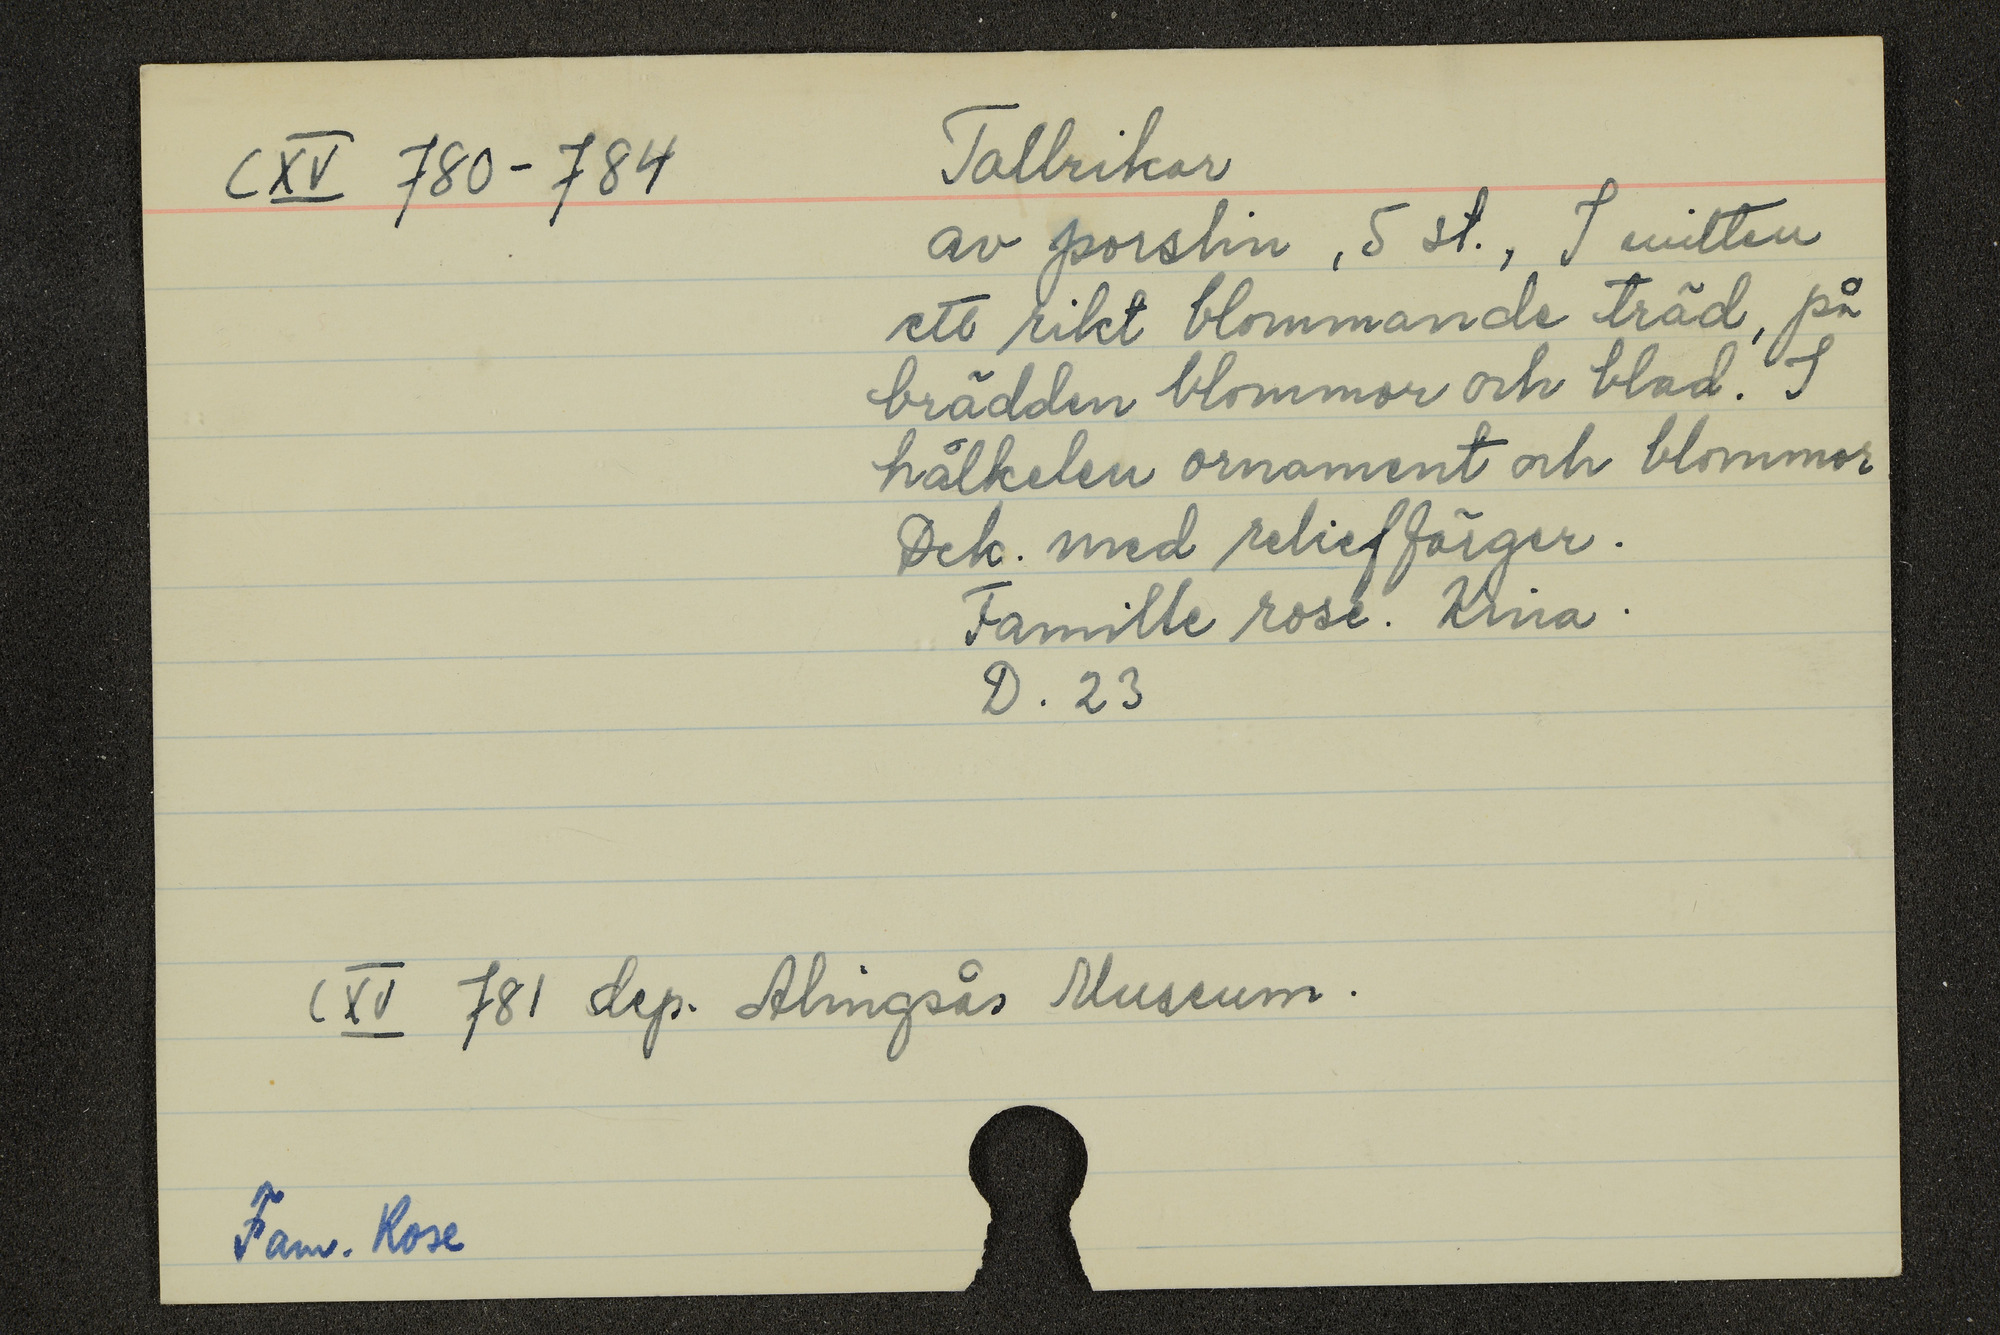 CXV 780-784
Tallrikar
av porslin, 5 st., I mitten
ett rikt blommande träd, på
brädden blommor och blad. I
hålkelen ornament och blommor
Dek. med relieffärger.
Famille rose. Kina.
D. 23
CXV 781 dep. Alingsås Museum.
Fam. Rose